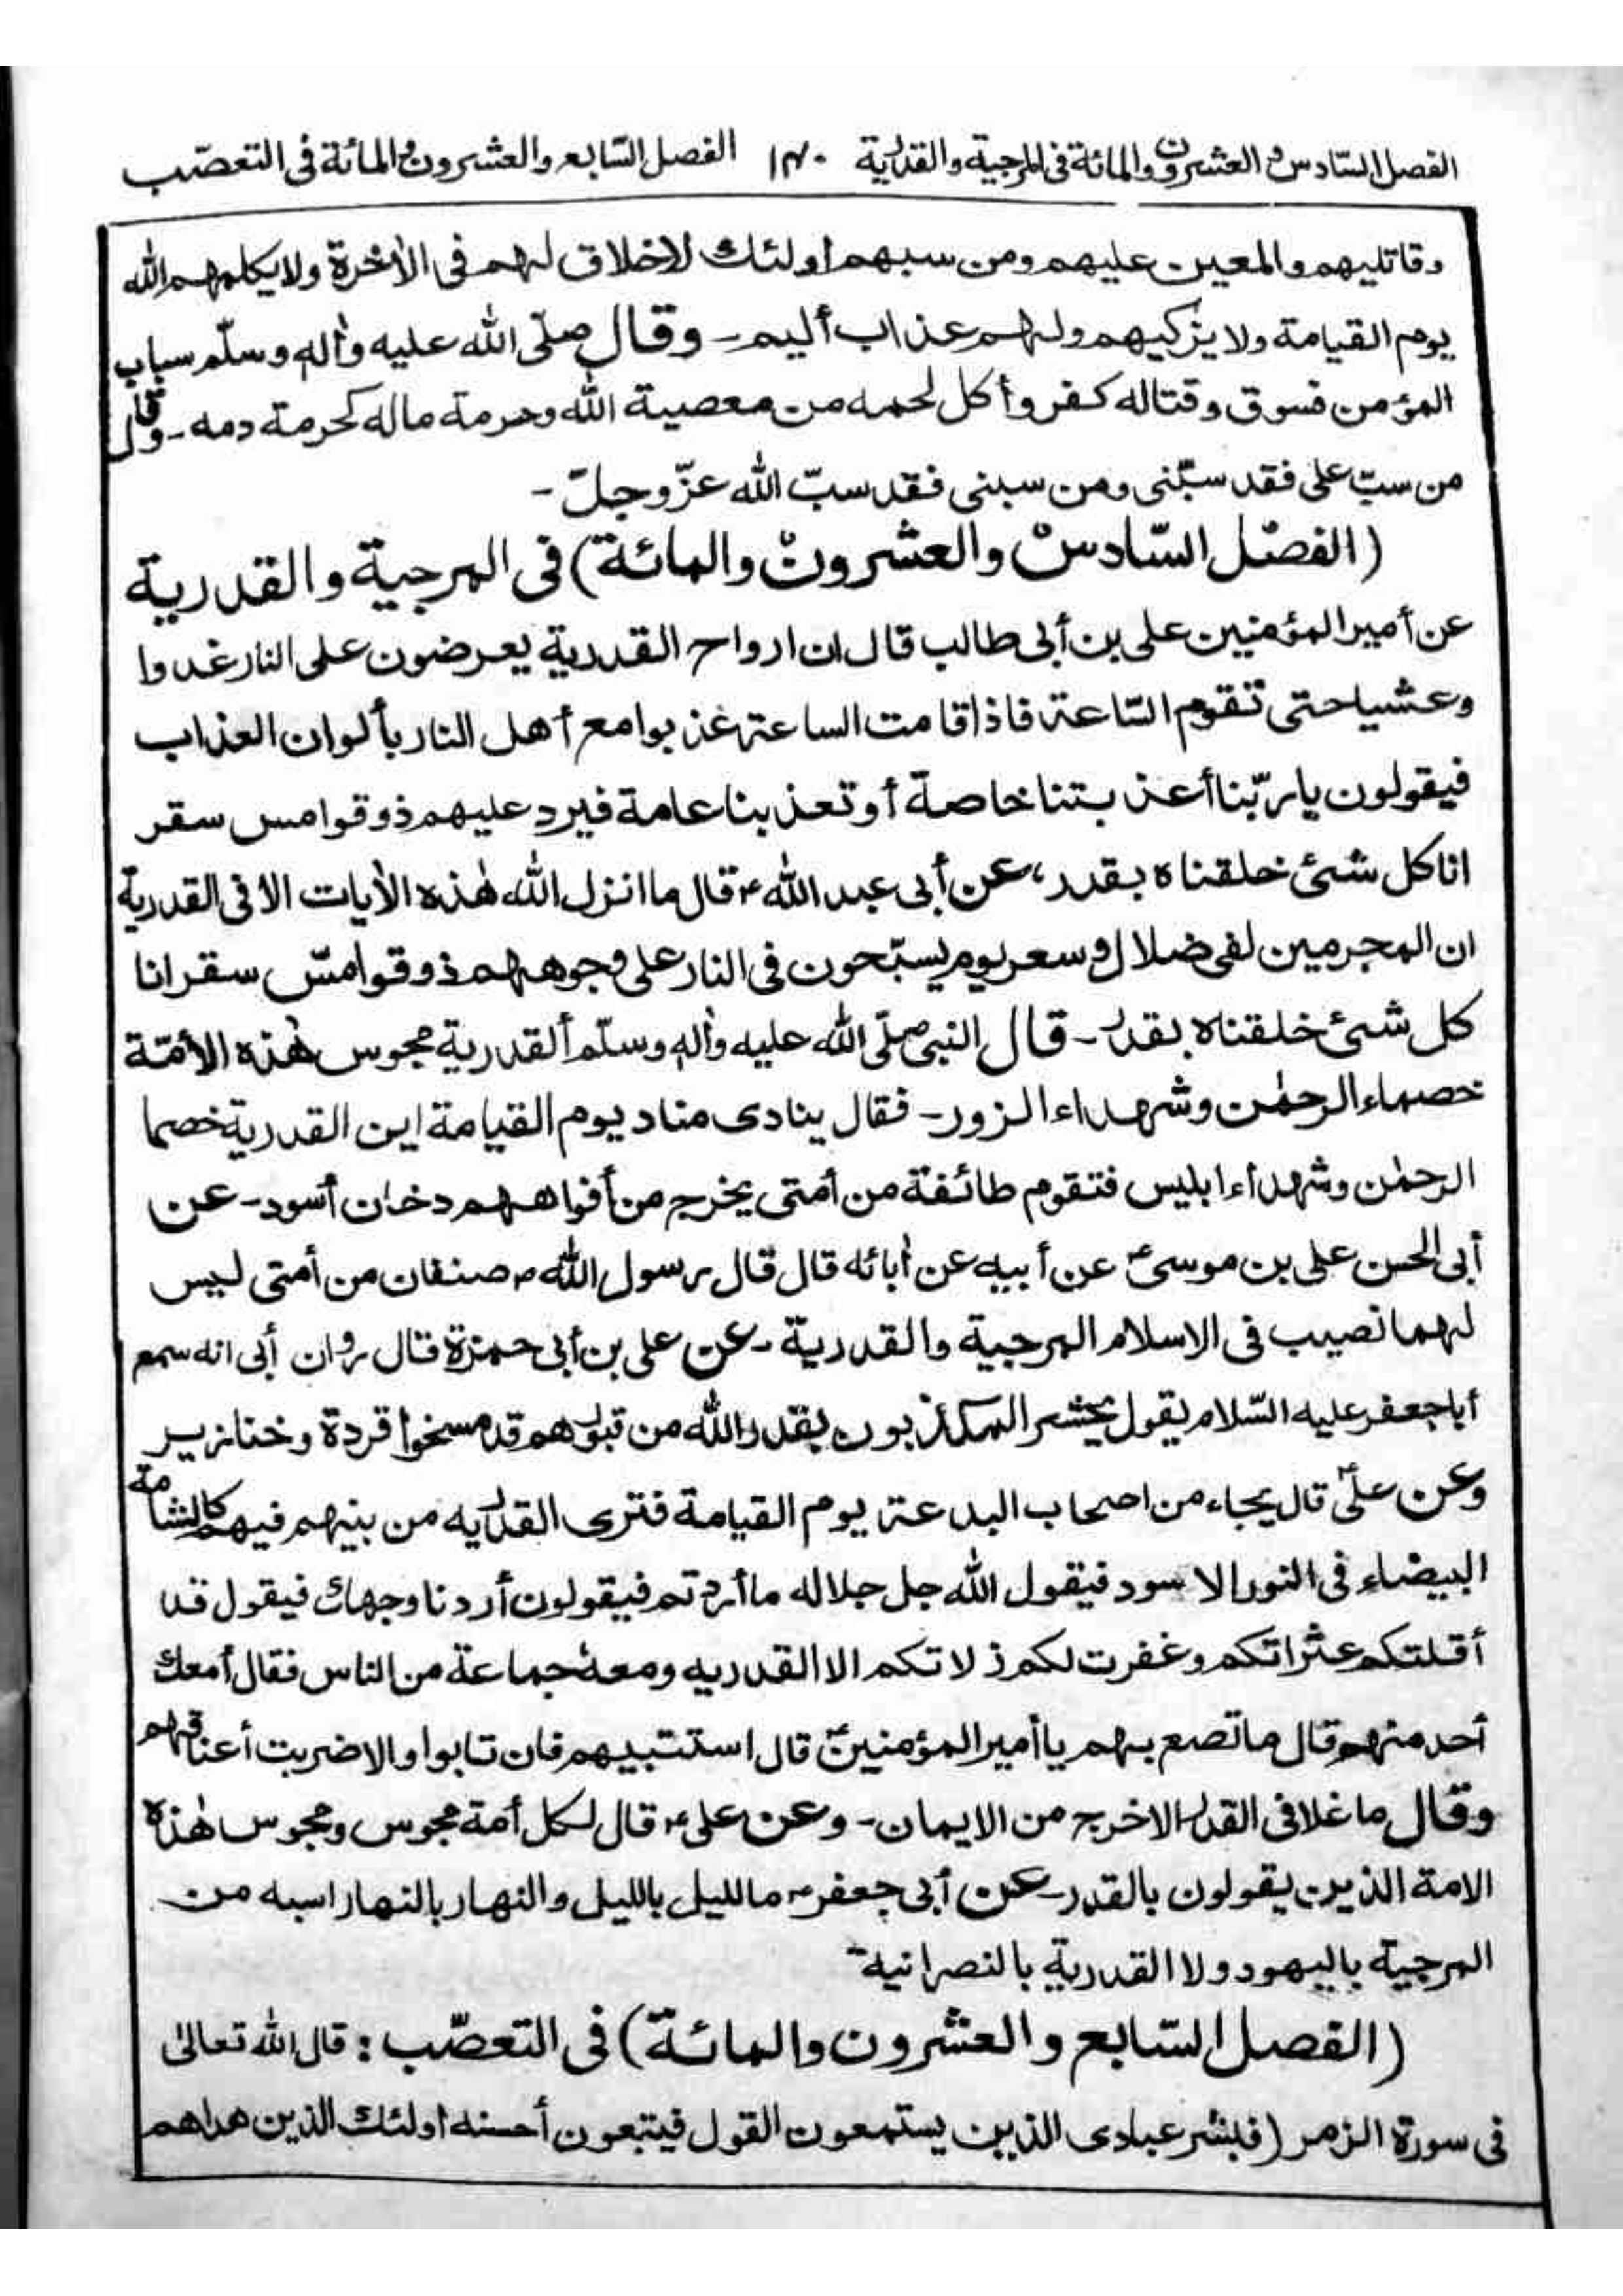 الفصل السّادس والعشرون والمائة في المرجية والقدرية ١٣٠ الفصل السّابع والعشرون والمائة في التعصّب
وقاتليهم والمعين عليهم ومن سبهم اولئك لاخلاق لهم في الأخرة ولا يكلمهم الله
يوم القيامة ولا يزكيهم ولهم عذاب أليم - وقال صلّى الله عليه وأله وسلّم سباب
المؤمن فسوق وقتاله كفر وأكل لحمه من معصية الله وحرمة ماله كحرمة دمه - وقال
من سبّ على فقد سبّنى ومن سبنى فقد سبّ الله عزّ وجلّ -
(الفصل السّادس والعشرون والمائة) في المرجية والقدرية
عن أمير المؤمنين على بن أبى طالب قال ان ارواح القدرية يعرضون على النار غدوا
وعشيا حتى تقوم السّاعة فاذا قامت الساعة عذبوا مع أهل النار بألوان العذاب
فيقولون يا ربّنا أعذبتنا خاصة أو تعذبنا عامة فيرد عليهم ذوقوا مس سقر
انا كل شئ خلقناه بقدر، عن أبى عبد الله ع قال ما انزل الله هٰذه الأيات الا في القدرية
ان المجرمين لفى ضلال وسعر يوم يسبّحون في النار على وجوههم ذوقوا مسّ سقر انا
كل شئ خلقناه بقدر - قال النبى صلّى الله عليه وأله وسلّم ألقدرية مجوس هٰذه الأمّة
خصماء الرحمٰن وشهداء الزور - فقال ينادى مناد يوم القيامة اين القدرية خصما
الرحمٰن وشهدأء ابليس فتقوم طائفة من أمتى يخرج من أفواههم دخان أسود - عن
أبى الحسن على بن موسىٰ ع عن أبيه عن أبائه قال قال رسول الله ص صنفان من أمتى ليس
لهما نصيب في الاسلام المرجية والقدرية - عن على بن أبى حمزة قال روان أبى انه سمع
أبا جعفر عليه السّلام يقول يحشر المكذبون بقدر الله من قبورهم قد مسخوا قردة وخنازير
وعن علىّ ع قال يجاء من اصحاب البدعة يوم القيامة فترى القدريه من بينهم فيهم كالشامة
البيضاء في النور الاسود فيقول الله جل جلاله ما أردتم فيقولون أردنا وجهك فيقول قد
أقلتكم عثراتكم وغفرت لكم ذلاتكم الا القدريه ومعهُ جماعة من الناس فقال أمعك
أحد منهم قال ما تصع بهم يا أمير المؤمنين ع قال استتبيهم فان تابوا والا ضربت أعناقهم
وقال ما غلا في القدر الا خرج من الايمان - وعن على ع قال لكل أمة مجوس ومجوس هٰذه
الامة الذين يقولون بالقدر - عن أبى جعفر ع ما لليل بالليل والنهار بالنهار اسبه من
المرجية باليهود ولا القدرية بالنصرانية
(الفصل السّابع والعشرون والمائة) في التعصّب : قال الله تعالىٰ
في سورة الزمر (فبشر عبادى الذين يستمعون القول فيتبعون أحسنه اولئك الذين هداهم